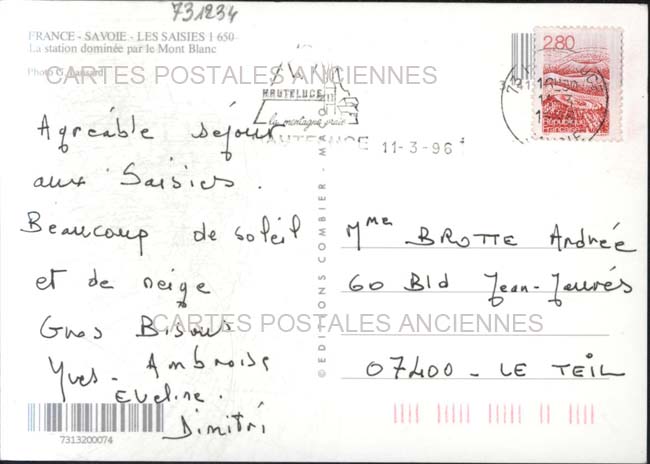 731234
FRANCE - SAVOIE - LES SAISIES 1 650
La station dominée par le Mont Blanc
Photo G.
CARTES POSTALES ANCIENNES
HAUTELUCE
la montagne vraie
HAUTELUCE 11-3-96
2,80
République
Française
Agréable séjour
aux Saisies.
Beaucoup de soleil
et de neige
Gros Bisous
Yves - Ambroise
Eveline.
Dimitri
7313200074
© EDITIONS COMBIER - MA
Mme BROTTE Andrée
60 Bld Jean-Jaurés
07400 - LE TEIL
CARTES POSTALES ANCIENNES